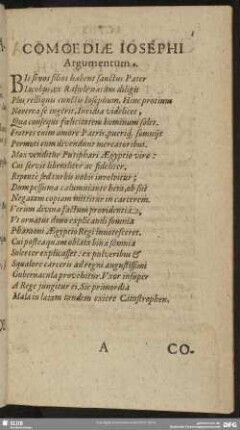 COMOEDIÆ IOSEPHI
Argumentum.
BIs senos filios habens sanctus Pater
præ
reliquis cunctis Iosephum. Hinc protinus
se ingerit. Invidia videlicet,
Qua conspici felicitatem hominum solet.
Fratres enim amore Patris, puerisq́; somnijs
Permoti eum divendunt mercatoribus.
Mox venditur Putiphari Ægyptio viro:
Cui servit liberaliter ac fideliter.
Repente sed turbis nobis involvitur;
Dum pessima calumniante hera, ob sibi
Negatam copiam mittitur in carcerem.
Verum divina factum providentia,
Ut ornatus dono explicandi somnia
Pharaoni Ægyptio Regi innotesceret.
Cui postea quam oblata bina somnia
Solerter explicasset: ex pulveribus &
Squalore carceris ad regni augustissimi
Gubernacula provehitur. Uxor insuper
A Rege jungitur ei. Sic primordia
Mala in latam tandem exiere Catastrophen.
A
CO-
SLUB
DFG